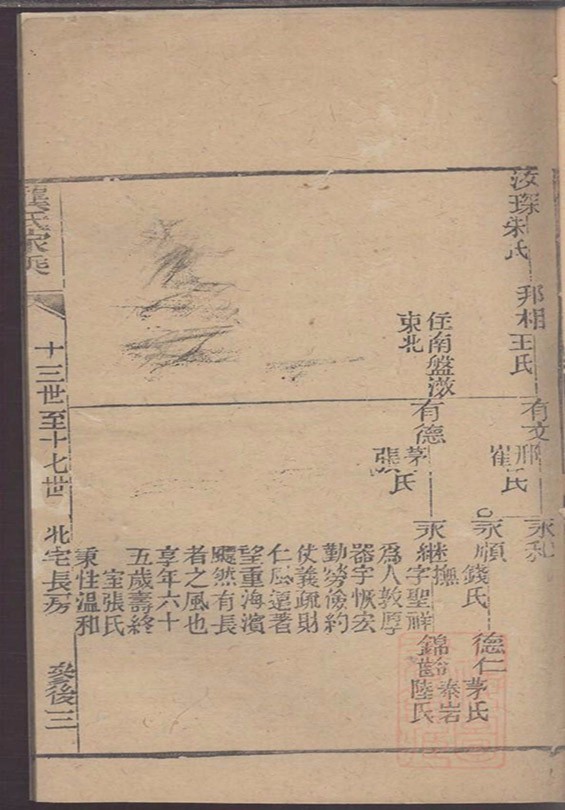 汝琛朱氏
邦相王氏
住南盤漖
東北
有文邢氏
崔
有德茅氏
張
永和
永順錢氏
德仁茅氏
永繼字聖祥
撫
錦
秦岩
陸氏
爲人敦厚
器宇恢宏
勤勞儉約
使義疏財
仁風遠著
望重海濱
飃然有長
者之風也
享年六十
五歲壽終
室張氏
秉性溫和
龔氏家乘
十三世至十七世
北宅長房
參後三